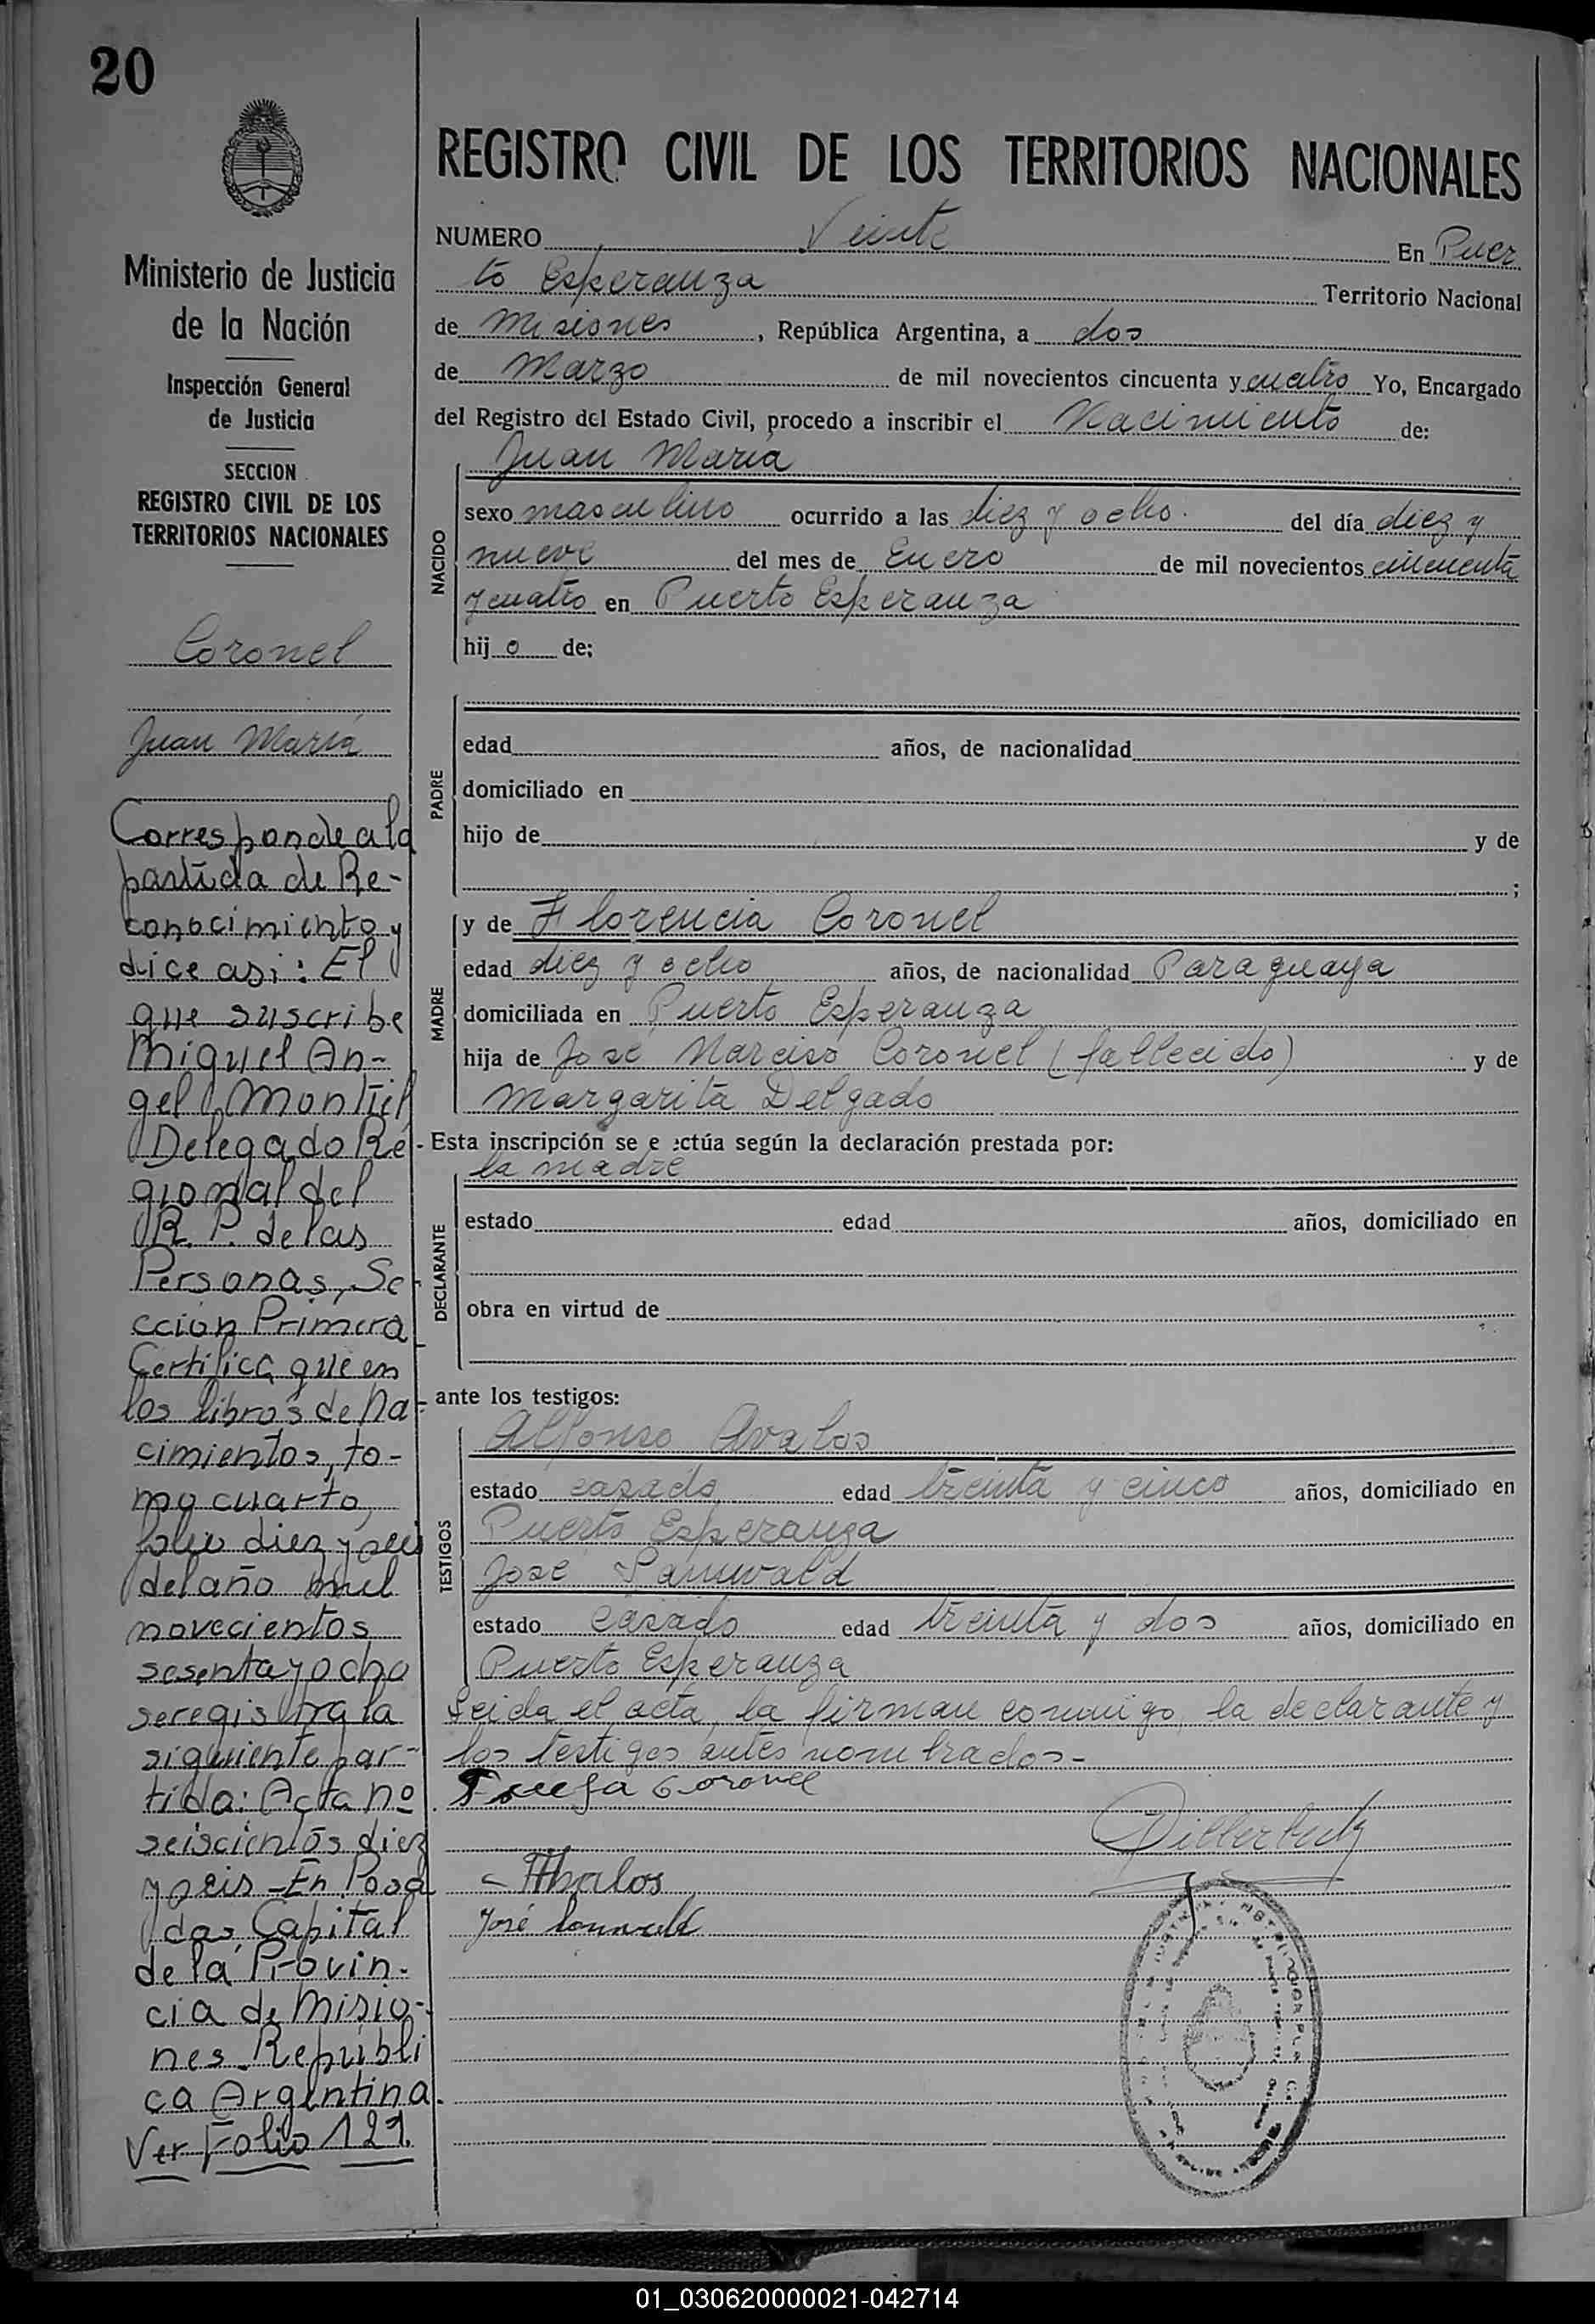 20
Ministerio de Justicia
de la Nación
Inspección General
de Justicia
SECCION
REGISTRO CIVIL DE LOS
TERRITORIOS NACIONALES
Coronel
Juan María
Corresponde a la
partida de Re-
conocimiento y
dice asi: El
que suscribe
Miguel An-
gel Montiel
Delegado Re-
gional del
R. P. de las
Personas, Se-
cción Primera
Certifica que en
los libros de Na-
cimientos, to-
mo cuarto,
folio diez y seis
del año mil
novecientos
sesenta y ocho
se registra la
siguiente par-
tida: Acta nº
seiscientos diez
y seis - En Posa
das, Capital
de la Provin-
cia de Misio-
nes - Repúbli
ca Argentina.
Ver Folio 121.
REGISTRO CIVIL DE LOS TERRITORIOS NACIONALES
NUMERO Veinte En Puer
to Esperanza Territorio Nacional
de Misiones, República Argentina, a dos
de Marzo de mil novecientos cincuenta y cuatro Yo, Encargado
del Registro del Estado Civil, procedo a inscribir el Nacimiento de:
NACIDO
Juan María
sexo masculino ocurrido a las diez y ocho del día diez y
nueve del mes de Enero de mil novecientos cincuenta
y cuatro en Puerto Esperanza
hijo de:
PADRE
edad años, de nacionalidad
domiciliado en
hijo de y de
;
MADRE
y de Florencia Coronel
edad diez y ocho años, de nacionalidad Paraguaya
domiciliada en Puerto Esperanza
hija de José Narciso Coronel (fallecido) y de
Margarita Delgado
Esta inscripción se e ectúa según la declaración prestada por:
DECLARANTE
la madre
estado edad años, domiciliado en
obra en virtud de
ante los testigos:
TESTIGOS
Alfonso Avalos
estado casado edad treinta y cinco años, domiciliado en
Puerto Esperanza
José
estado casado edad treinta y dos años, domiciliado en
Puerto Esperanza
Leida el acta, la firman conmigo, la declarante y
los testigos antes nombrados-
Coronel
José
01_030620000021-042714